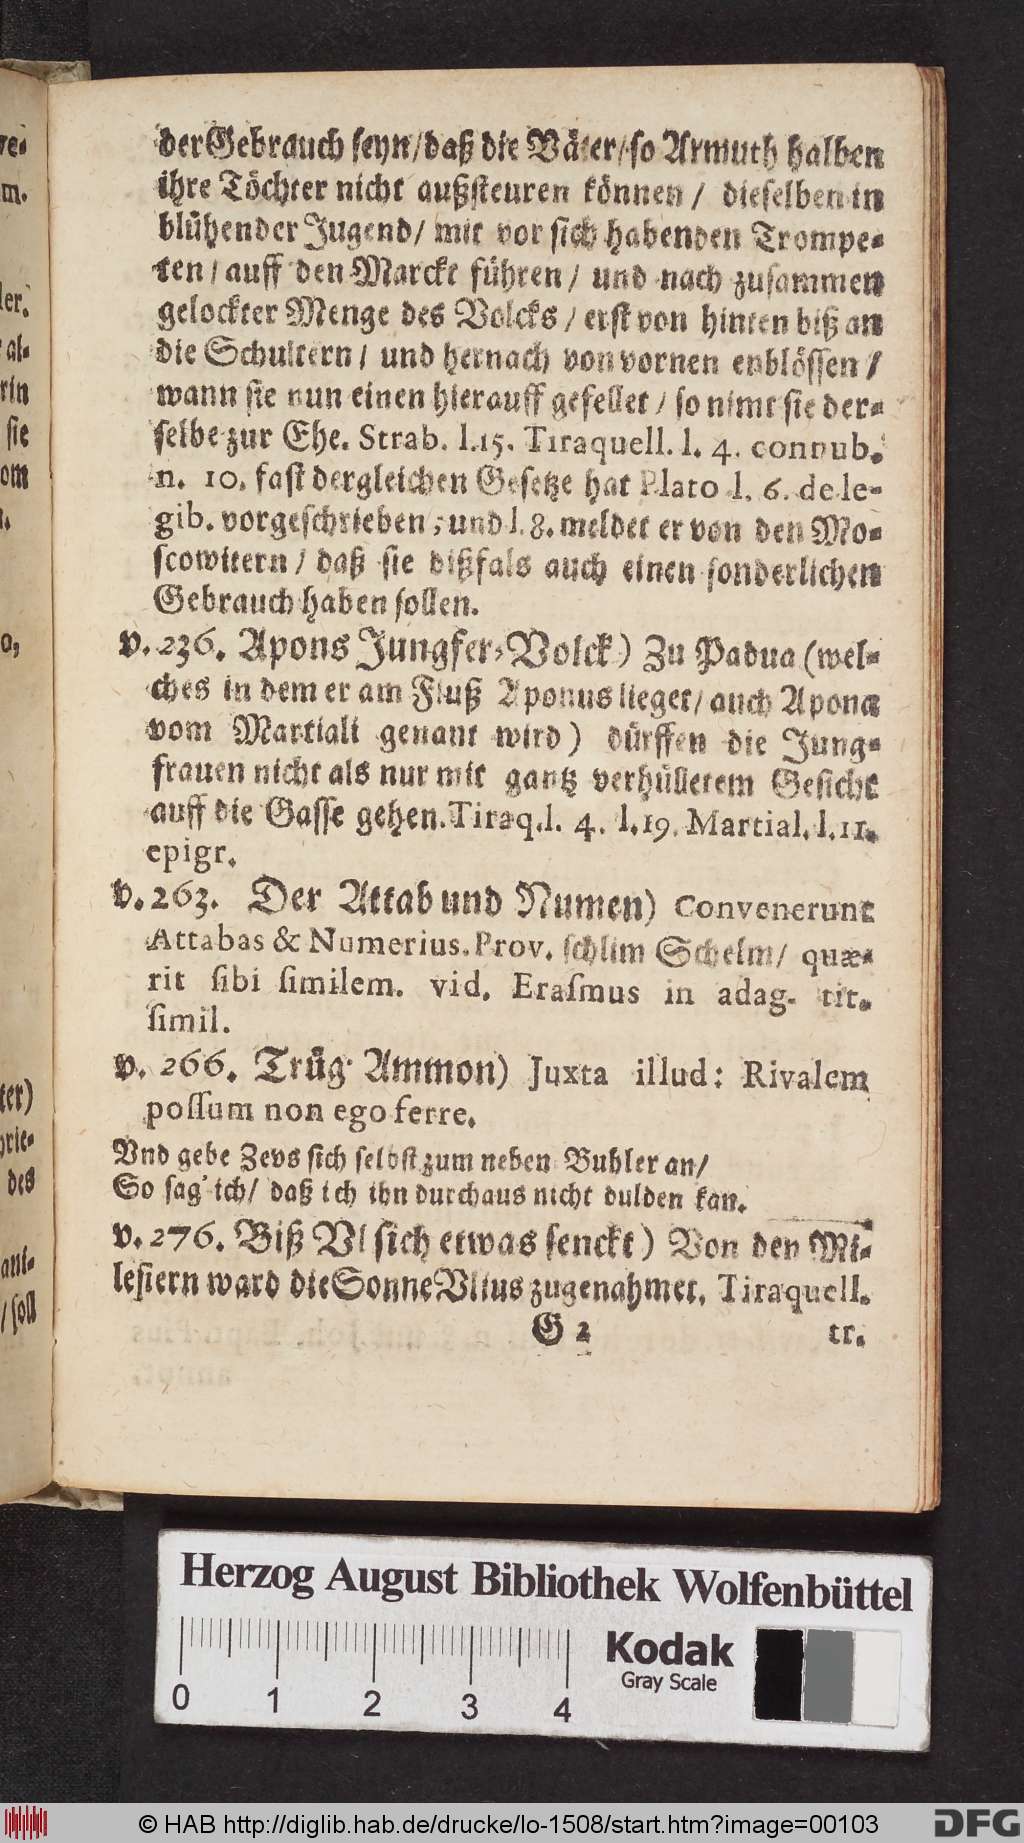 der Gebrauch seyn/daß die Väter/so Armuth halben
ihre Töchter nicht außsteuren können / dieselben in
blühender Jugend/ mit vor sich habenden Trompe-
ten/ auff den Marckt führen / und nach zusammen
gelockter Menge des Volcks / erst von hinten biß an
die Schultern / und hernach von vornen enblössen /
wann sie nun einen hierauff gefellet / so nimt sie der-
selbe zur Ehe. Strab. l.15. Tiraquell. l. 4. connub.
n. 10. fast dergleichen Gesetze hat Plato l. 6. de le-
gib. vorgeschrieben, und l. 8. meldet er von den Mo-
scowitern / daß sie dißfals auch einen sonderlichen
Gebrauch haben sollen.
v. 236. Apons Jungfer-Volck) Zu Padua (wel-
ches in dem er am Fluß Aponus lieget/ auch Apona
vom Martiali genant wird) dürffen die Jung-
frauen nicht als nur mit gantz verhülletem Gesicht
auff die Gasse gehen. Tiraq. l. 4. l. 19. Martial. l. 11.
epigr.
v. 263. Der Attab und Numen) Convenerunt
Attabas & Numerius. Prov. schlim Schelm/ quæ-
rit sibi similem. vid. Erasmus in adag. tit.
simil.
v. 266. Trüg Ammon) Juxta illud: Rivalem
possum non ego ferre.
Vnd gebe Zevs sich selbst zum neben Buhler an/
So sag' ich/ daß ich ihn durchaus nicht dulden kan.
v. 276. Biß Vl sich etwas senckt) Von den Mi-
lesiern ward die Sonne Vlius zugenahmet. Tiraquell.
G 2 tr.
Herzog August Bibliothek Wolfenbüttel
Kodak
Gray Scale
0 1 2 3 4
© HAB http://diglib.hab.de/drucke/lo-1508/start.htm?image=00103
DFG